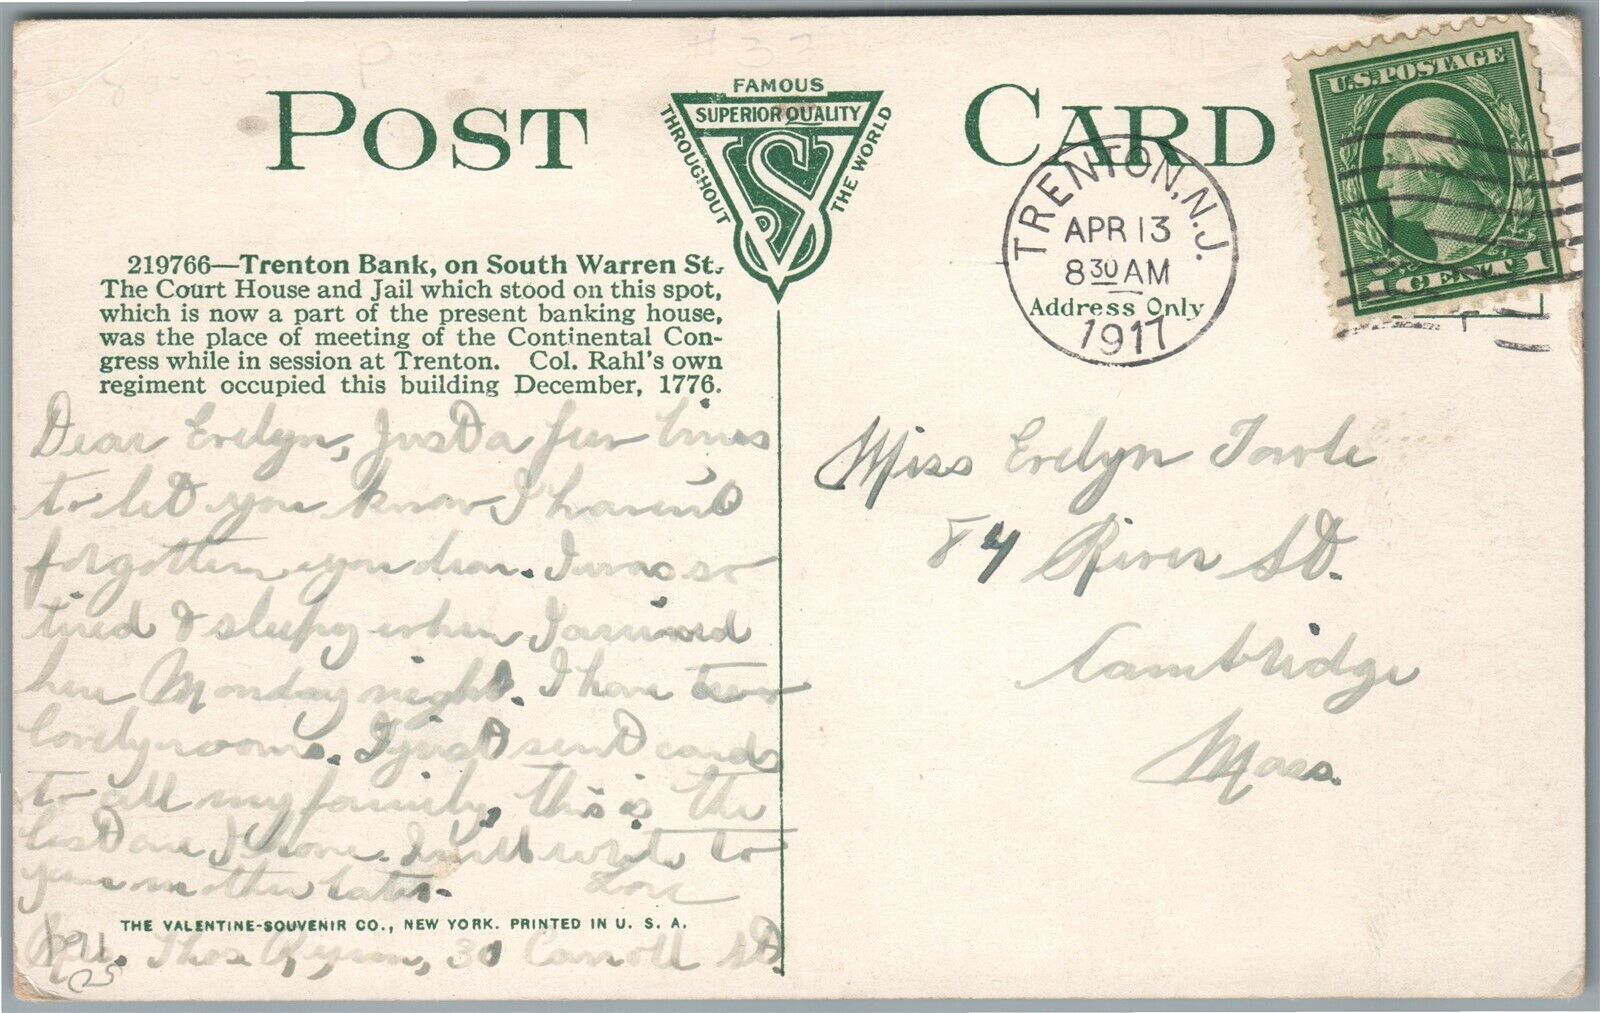 POST CARD
FAMOUS
SUPERIOR QUALITY
THROUGHOUT
THE WORLD
VS
U.S. POSTAGE
1 CENT 1
TRENTON, N.J.
APR 13
8 30 AM
1917
Address Only
219766—Trenton Bank, on South Warren St.
The Court House and Jail which stood on this spot,
which is now a part of the present banking house,
was the place of meeting of the Continental Con-
gress while in session at Trenton. Col. Rahl's own
regiment occupied this building December, 1776.
Dear Evelyn, Just a few lines
to let you know I haven't
forgotten you dear. I was so
tired & sleepy when I arrived
here Monday night. I have two
lovely rooms. I just sent cards
to all my family, this is the
last one I have. I will write to
your mother later. Love
THE VALENTINE-SOUVENIR CO., NEW YORK. PRINTED IN U. S. A.
Thos. 30 Carroll St.
Miss Evelyn Towle
84 River St.
Cambridge
Mass.